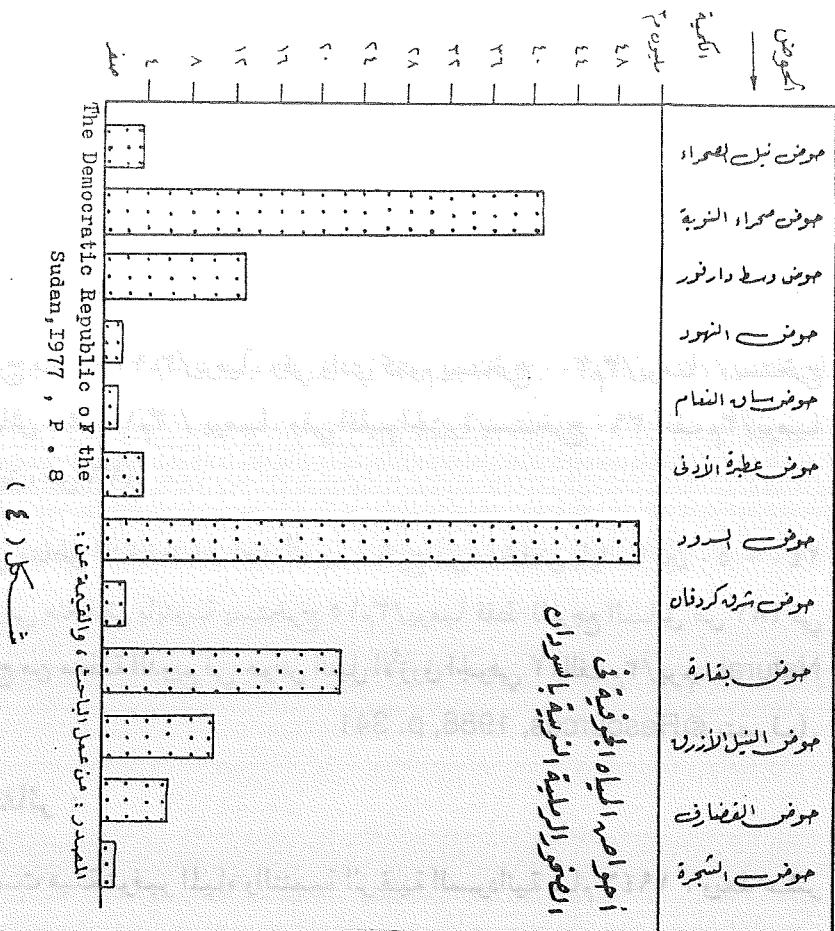 الحوض
الكمية
مليون م٣
صفر
٤
٨
١٢
١٦
٢٠
٢٤
٢٨
٣٢
٣٦
٤٠
٤٤
٤٨
حوض نيل الصحراء
حوض صحراء النوبة
حوض وسط دارفور
حوض النهود
حوض ساق النعام
حوض عطبرة الأدنى
حوض السدود
حوض شرق كردفان
حوض بقارة
حوض النيل الأزرق
حوض القضارف
حوض الشجرة
أحواض المياه الجوفية في
الصخور الرملية النوبية بالسودان
المصدر : من عمل الباحث ، والقيمة عن :
The Democratic Republic of the
Sudan, I977 , P . 8
شكل ( ٤ )